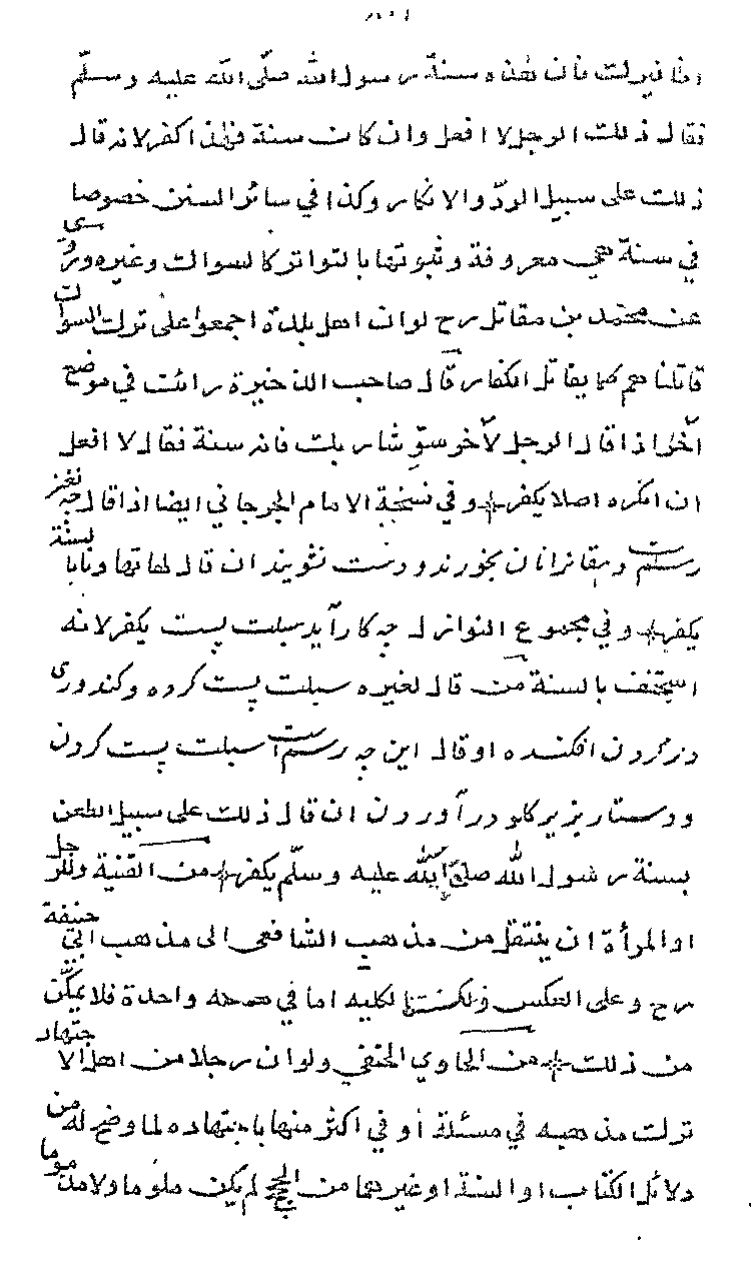 اظافيرك فان هذه سنة رسول الله صلى الله عليه وسلّم
فقال ذلك الرجل لا افعل وان كان سنة فهذا كفر لانه قال
ذلك على سبيل الردّ والانكار وكذا في سائر السنن خصوصا
في سنة هي معروفة وثبوتها بالتواتر كالسواك وغيره وروى
عن محمّد بن مقاتل رح لو ان اهل بلدة اجمعوا على ترك السواك
قاتلناهم كما يقاتل الكفار قال صاحب الذخيرة رائت في موضع
آخر اذا قال الرجل لآخر سوّ شاربك فانه سنة فقال لا افعل
ان انكره اصلا يكفر وفي نسخة الامام الجرجاني ايضا اذا قال چه
رسمست دهقانان بخورند ودست نشويند ان قال تهاونا بالسنة
يكفر وفي مجموع النوازل چه كار آيد سبلت پست يكفر لانه
استخف بالسنة من قال لغيره سبلت پست كرده وكندورى
در كردن افكنده او قال اين چه رسمست سبلت پست كردن
ودستار بزير كلو در آوردن ان قال ذلك على سبيل الطعن
بسنة رسول الله صلى الله عليه وسلّم يكفر من القنية وللرجل
او المرأة ان ينتقل من مذهب الشافعى الى مذهب ابي حنيفة
رح وعلى العكس ولكن بالكليه اما في مسئلة واحدة فلا يمكّن
من ذلك من الحاوي الحنفي ولو ان رجلا من اهل الاجتهاد
ترك مذهبه في مسئلة أو في اكثر منها باجتهاده لما وضح له من
دلائل الكتاب او السنة او غيرهما من الحجج لم يكن ملوما ولا مذموما